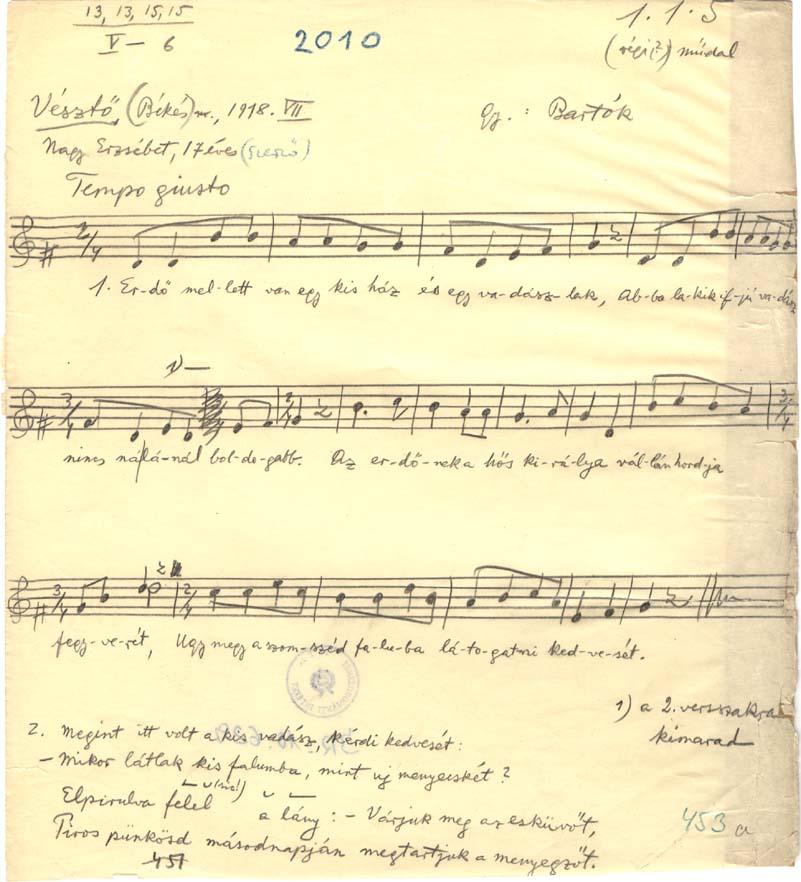 13, 13, 15, 15
V – 6
2010
1. 1. 5
(régi?) műdal
Vésztő, (Békés) m., 1918. VII
Gy. : Bartók
Nagy Erzsébet, 17 éves
Tempo giusto
2/4
1. Er-dő mel-lett van egy kis ház és egy va-dász-lak, Ab-ba la-kik if-jú va-dász
1) —
3/4 2/4 3/4
nincs nálá-nál bol-do-gabb. Az er-dő-nek a hős ki-rá-lya vál-lán hord-ja
3/4 2/4
fegy-ve-rét, Ugy megy a szom-széd fa-lu-ba lá-to-gatni ked-ve-sét.
1) a 2. versszakra
kimarad
2. Megint itt volt a kis vadász, kérdi kedvesét:
– Mikor látlak kis falumba, mint uj menyecskét?
Elpirulva felel a lány: – Várjuk meg az esküvőt,
Piros pünkösd másodnapján megtartjuk a menyegzőt.
453 a
451